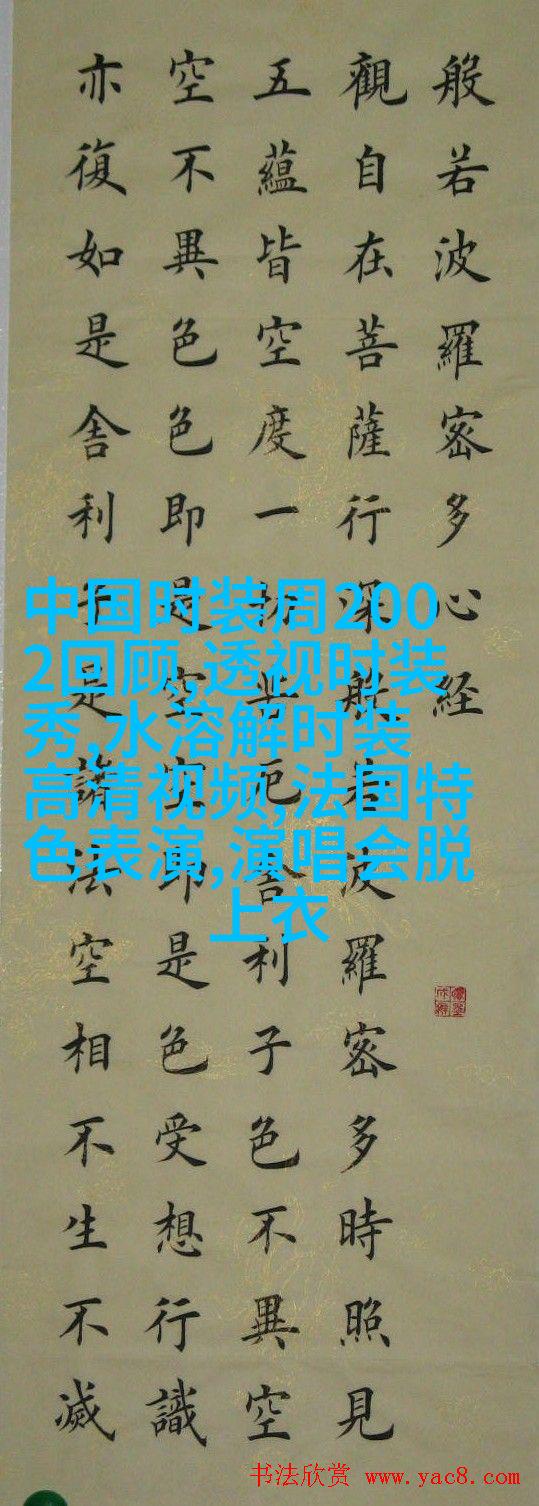 般若波羅密多心経
觀自在菩薩行深般若波羅密多時照見
五蘊皆空度一切苦厄舍利子色不異空
空不異色色即是空空即是色受想行識
亦復如是舍利子是諸法空相不生不滅
中国时装周200
2回顾,透视时装
秀,水溶解时装
高清视频,法国特
色表演,演唱会脱
上衣
书法欣赏 www.yac8.com